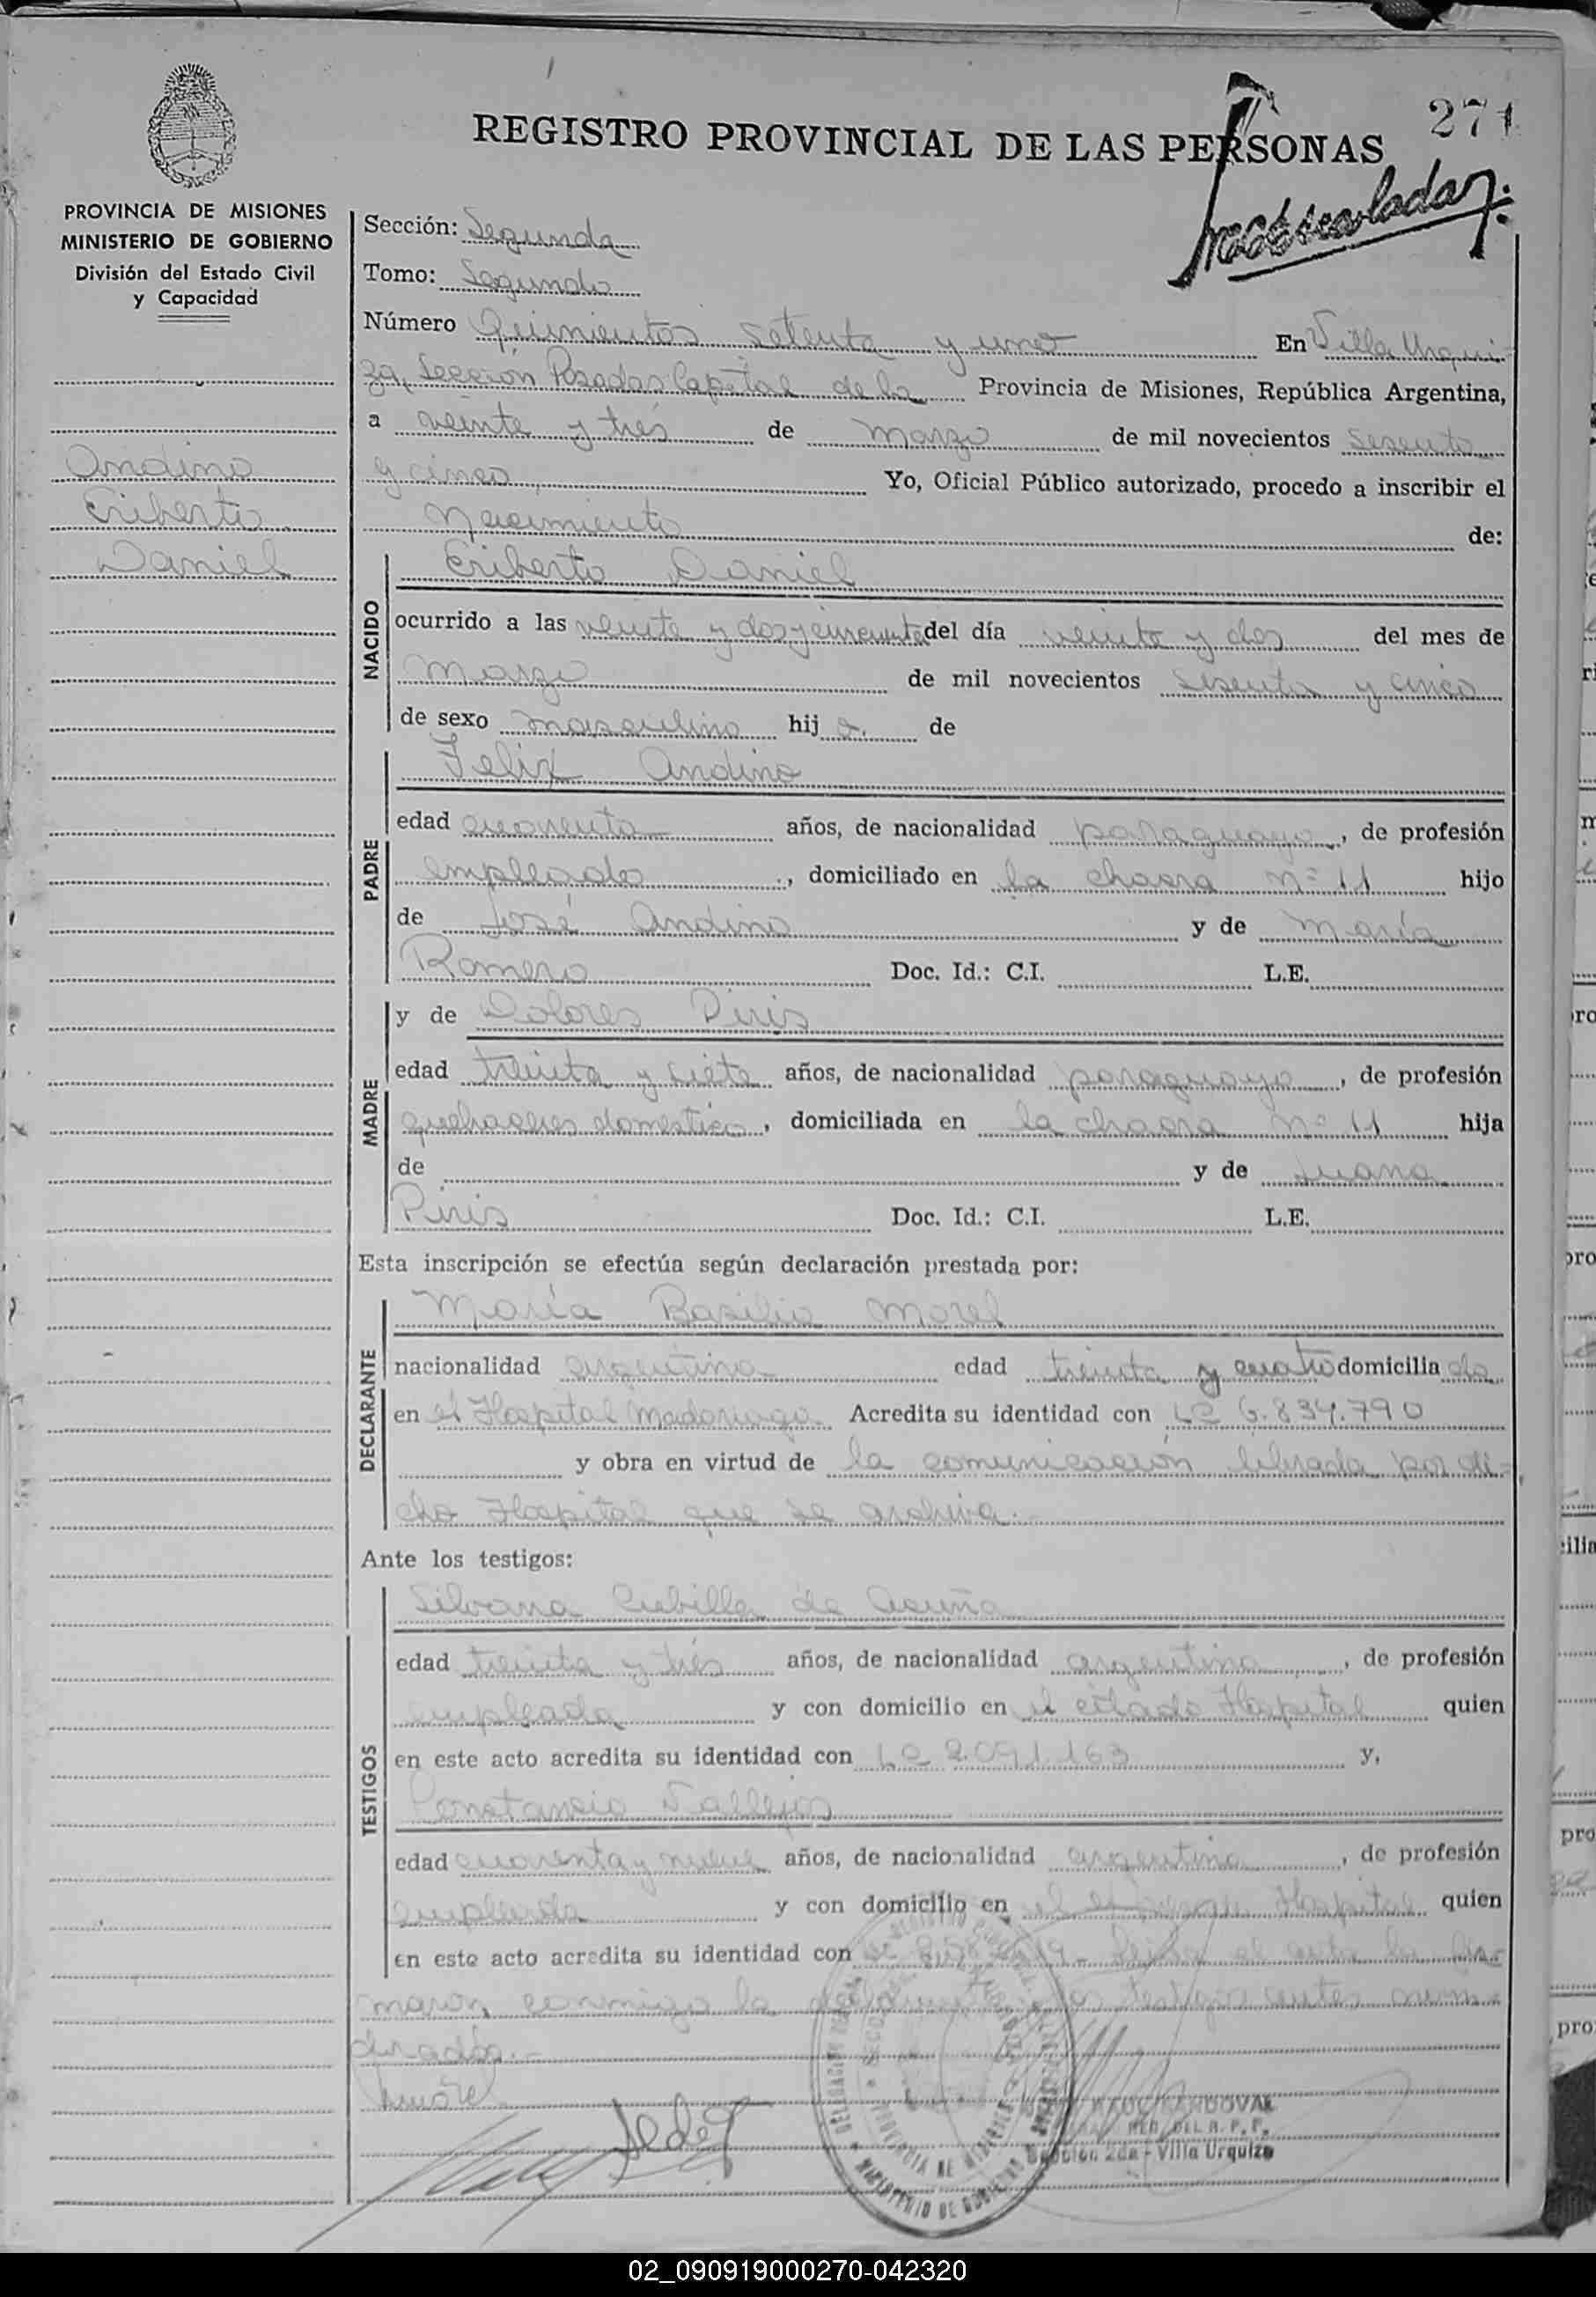 271
REGISTRO PROVINCIAL DE LAS PERSONAS
PROVINCIA DE MISIONES
MINISTERIO DE GOBIERNO
División del Estado Civil
y Capacidad
Andino
Eriberto
Daniel
Sección: Segunda
Tomo: Segundo
Número Quinientos setenta y uno En Villa Urqui-
za, Sección Posadas Capital de la Provincia de Misiones, República Argentina,
a veinte y trés de Marzo de mil novecientos Sesenta
y cinco Yo, Oficial Público autorizado, procedo a inscribir el
Nacimiento de:
NACIDO
Eriberto Daniel
ocurrido a las veinte y dos y cincuenta del día veinte y dos del mes de
Marzo de mil novecientos sesenta y cinco
de sexo masculino hij o de
PADRE
Felix Andino
edad cuarenta años, de nacionalidad paraguaya, de profesión
empleado, domiciliado en la chacra nº 11 hijo
de José Andino y de María
Romero Doc. Id.: C.I. L.E.
MADRE
y de Dolores Piris
edad treinta y siete años, de nacionalidad paraguaya, de profesión
quehaceres domestico, domiciliada en la chacra nº 11 hija
de y de Juana
Piris Doc. Id.: C.I. L.E.
Esta inscripción se efectúa según declaración prestada por:
DECLARANTE
María Basilia Morel
nacionalidad argentina edad treinta y cuatro domicilia da
en el Hospital Madariaga Acredita su identidad con LC 6.834.790
y obra en virtud de la comunicación librada por di-
cho Hospital que se archiva.
Ante los testigos:
TESTIGOS
Silvana Cubilla de Acuña
edad treinta y trés años, de nacionalidad argentina, de profesión
empleada y con domicilio en el citado Hospital quien
en este acto acredita su identidad con LC 2.091.163 y,
Constancio Vallejos
edad cuarenta y nueve años, de nacionalidad argentina, de profesión
empleada y con domicilio en el Hospital quien
en este acto acredita su identidad con Leida el acta la fir-
maron conmigo la declarante y los testigos antes nom-
brados.-
SANDOVAL
DEL R. P. P.
Sección 2da - Villa Urquiza
02_090919000270-042320